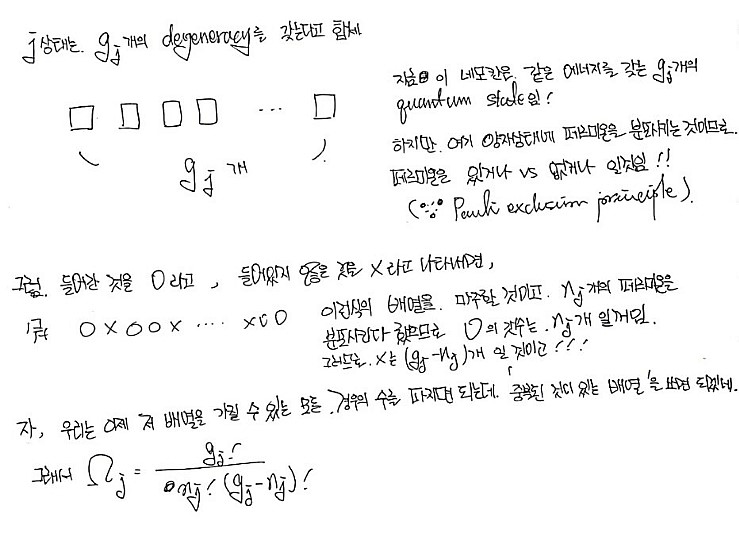 j상태는 gj개의 degeneracy를 갖는다고 합세
지금 이 네모칸은 같은 에너지를 갖는 gj개의
quantum state임!
하지만 여기 양자상태에 페르미온을 분포시키는 것이므로
페르미온은 있거나 vs 없거나 인것임!!
(∵ Pauli exclusion principle).
□ □ □ □ ... □
gj 개
그럼, 들어간 것을 O라고, 들어있지 않은 것을 X라고 나타내면,
O X O O X .... X O O
이런식의 배열을 마주할 것이고. nj개의 페르미온을
분포시킨다 했으므로 O의 갯수는 nj개 일거임.
그러므로 X는 (gj-nj)개 일 것이고!!!
자, 우리는 이제 저 배열을 가질 수 있는 모든 경우의 수를 따지면 되는데, '중복된 것이 있는 배열'을 보면 되겠네.
그래서 Ωj = gj! / nj! (gj-nj)!